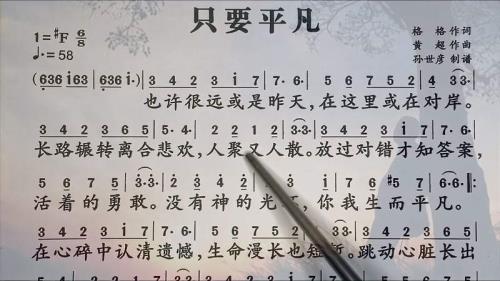 只要平凡
1=#F 6/8
♩.=58
格 格 作词
黄 超 作曲
孙世彦 制谱
(636 i63 636 i· | 3 4 2 3 i 7 | 7· 6· | 5 6 7 5 6 7 | 4 3 3·
也许很远或是昨天,在这里或在对岸。
3 4 2 3 6 5 | 5· 4· | 2 2 1 2 | 3· 3· | 3 4 2 3 i 7 | 7· 6·
长路辗转离合悲欢,人聚又人散。放过对错才知答案,
5 6 7 5 | 3· 3·
活着的勇敢。没有神的光 你我生而平凡。
在心碎中认清遗憾,生命漫长也短暂。跳动心脏长出